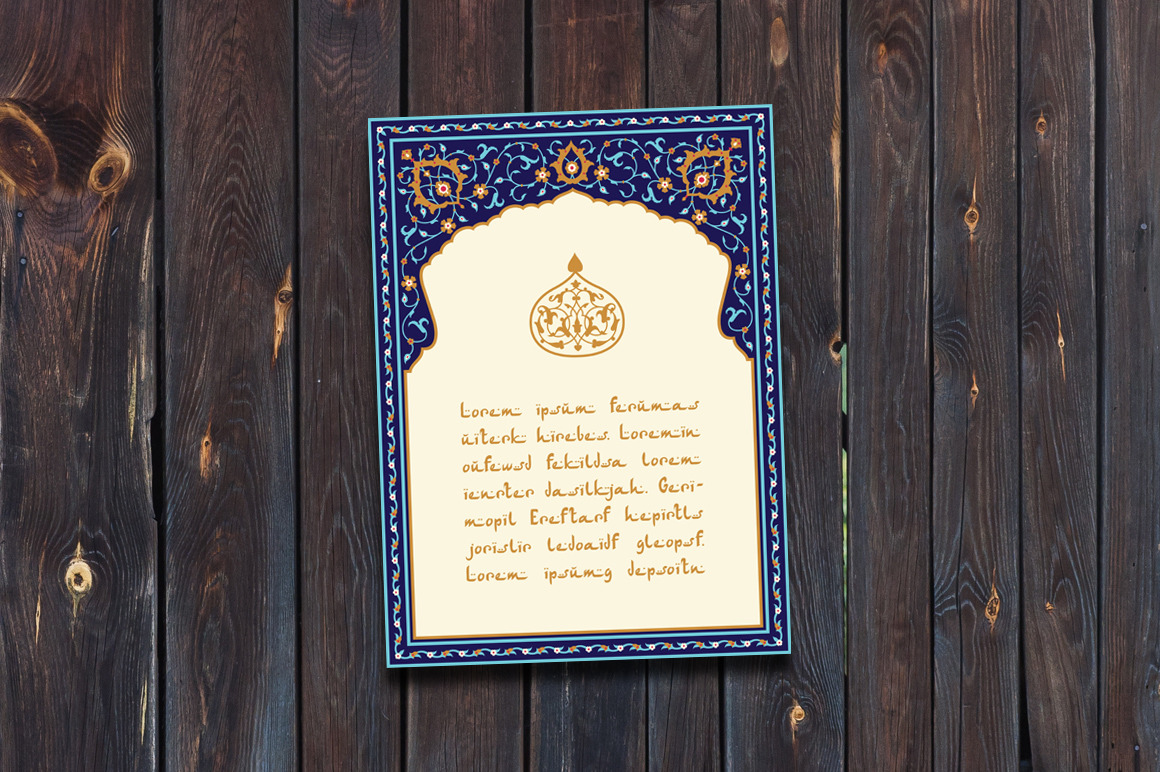 Lorem ipsum ferumas
uiterk hirebes. Loremin
oufewsd fekildsa lorem
ienrter dasilkjah. Geri-
mopil Ereftarf hepirtls
jorislir ledoaidf gleopsf.
Lorem ipsumg depsoitn